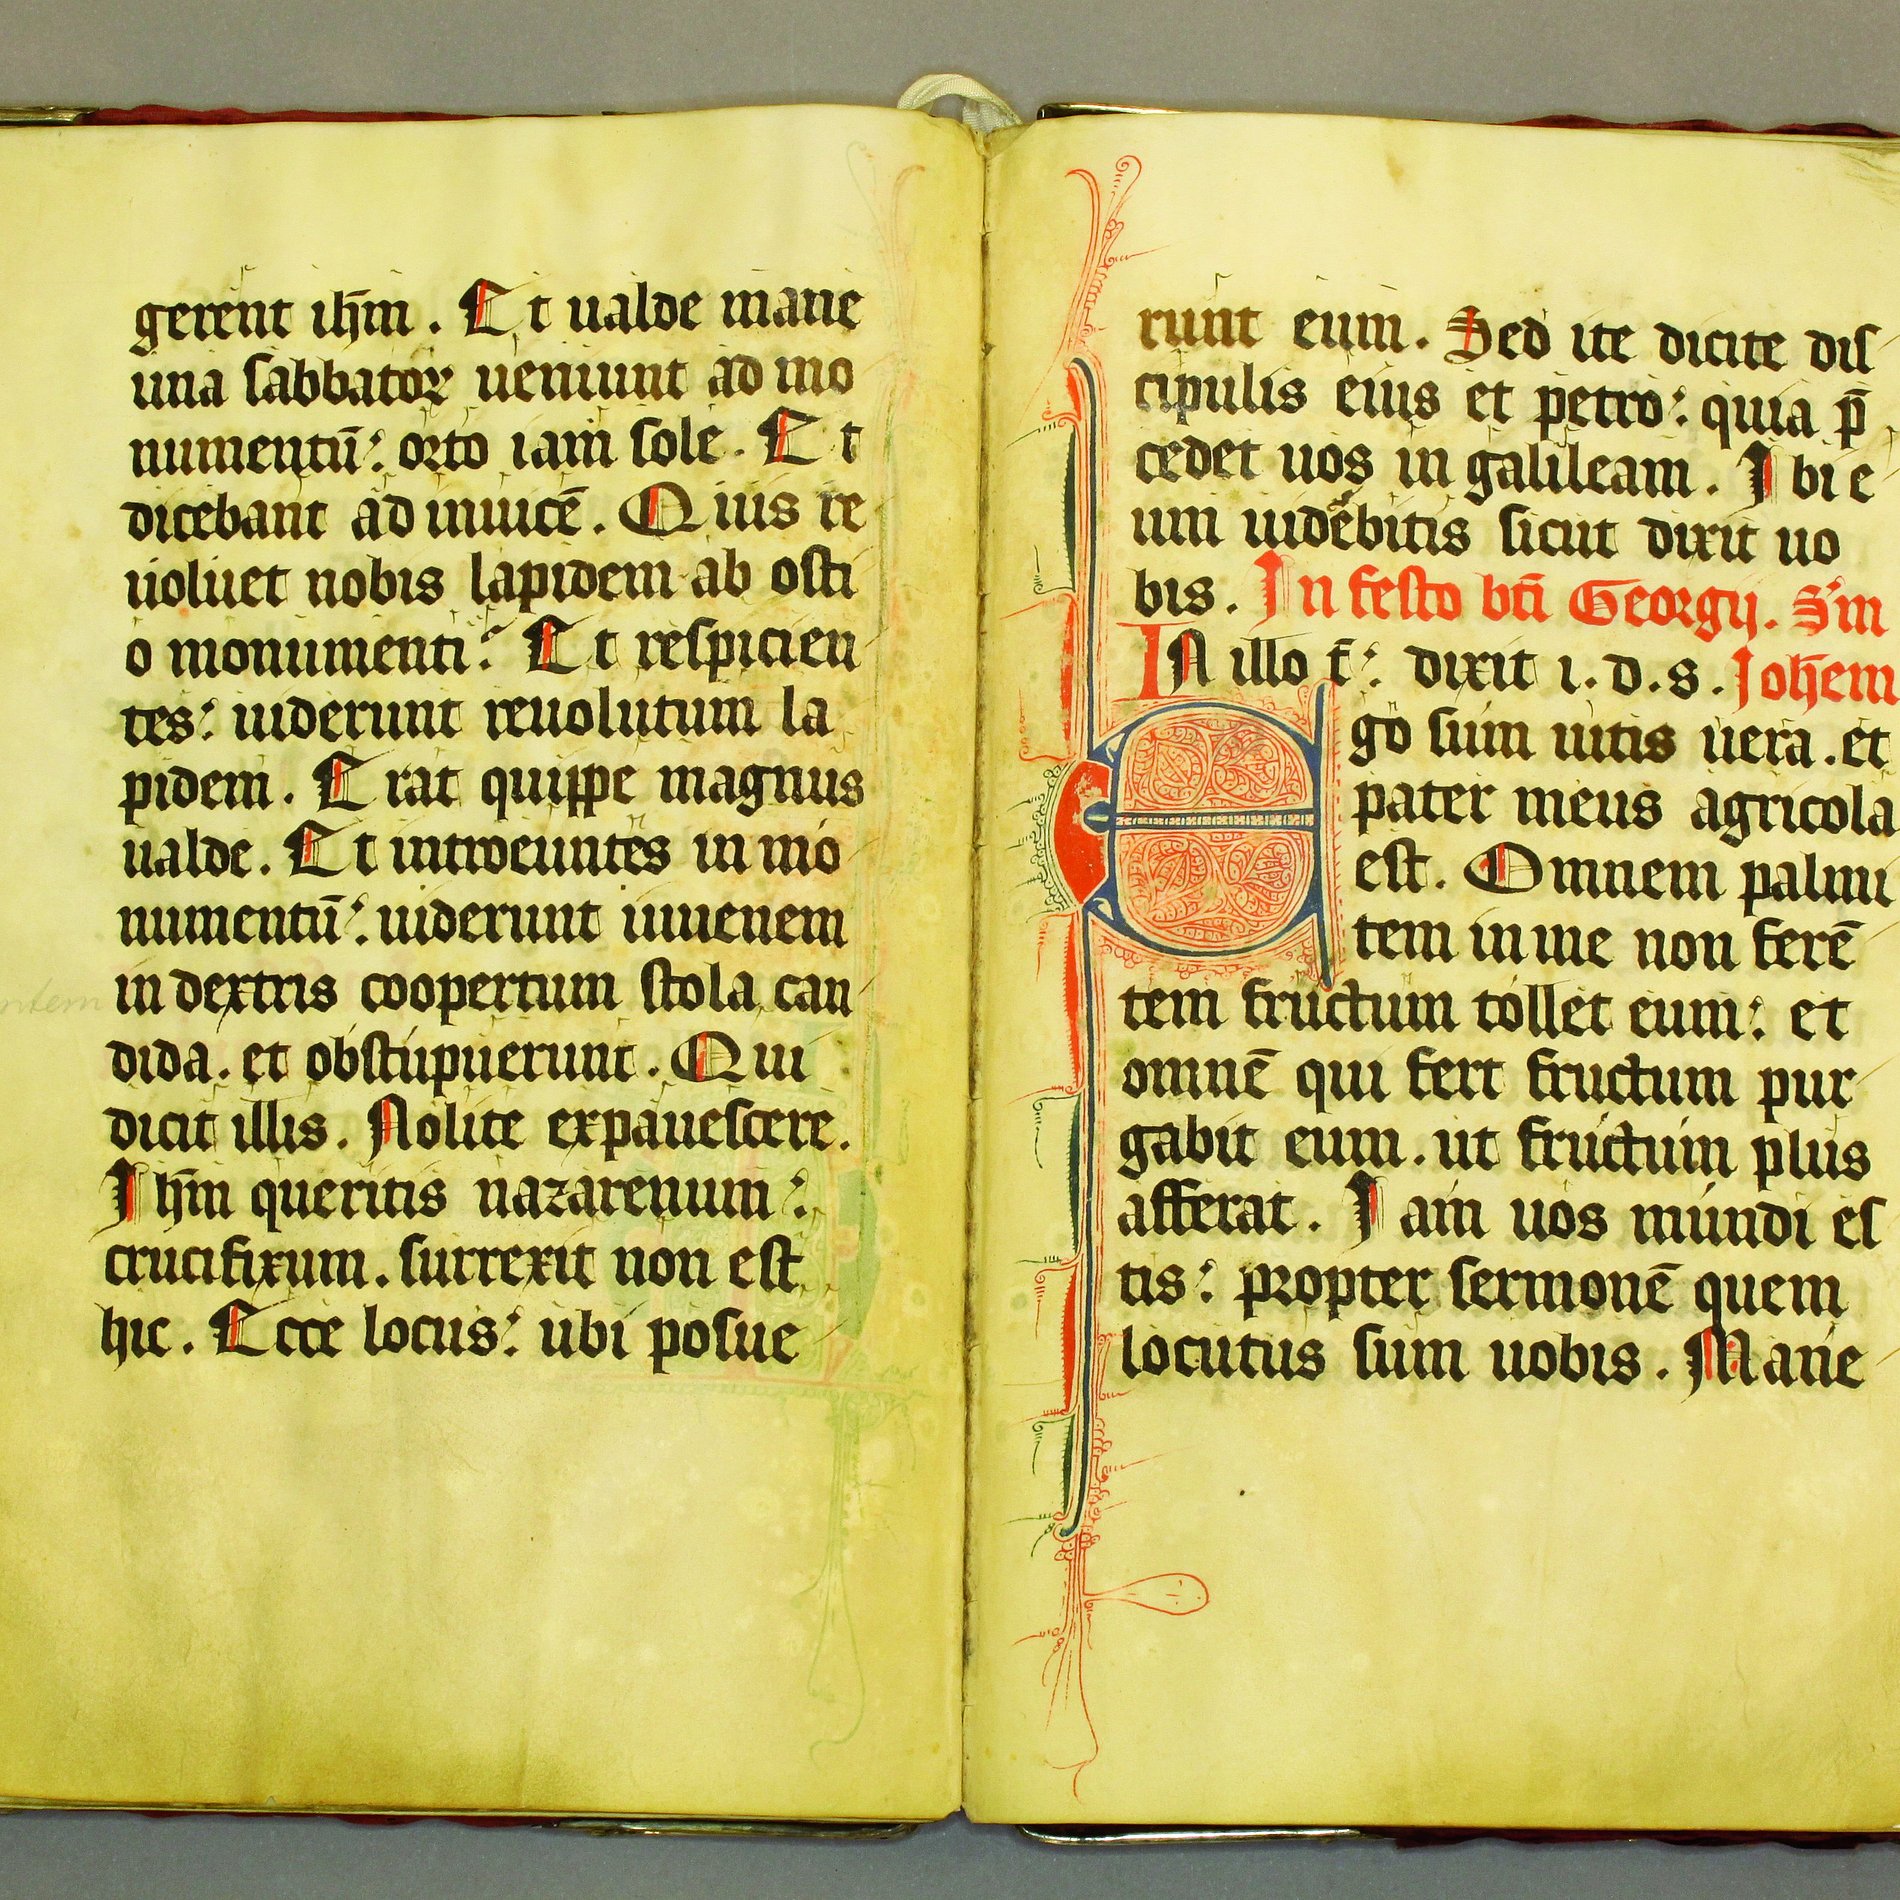 gerent ihm̄. Et ualde mane
una sabbatoꝝ ueniunt ad mo
numentū: orto iam sole. Et
dicebant ad inuicē. Quis re
uoluet nobis lapidem ab osti
o monumenti: Et respicien
tes: uiderunt reuolutum la
pidem. Erat quippe magnus
ualde. Et introeuntes in mo
numentū: uiderunt iuuenem
in dextris coopertum stola can
dida. et obstupuerunt. Qui
dicit illis. Nolite expauescere.
Ihm̄ queritis nazarenum:
crucifixum. surrexit non est
hic. Ecce locus: ubi posue
runt eum. Sed ite dicite dis
cipulis eius et petro: quia p̄
cedet uos in galileam. Ibi e
um uidebitis sicut dixit uo
bis. In festo bt̄i Georgij. S'm
IN illo t̄: dixit i.d.s. Joh̄em
Ego sum uitis uera. et
pater meus agricola
est. Omnem palmi
tem in me non ferē
tem fructum tollet eum: et
omnē qui fert fructum pur
gabit eum. ut fructum plus
afferat. Iam uos mundi es
tis: propter sermonē quem
locutus sum uobis. Mane